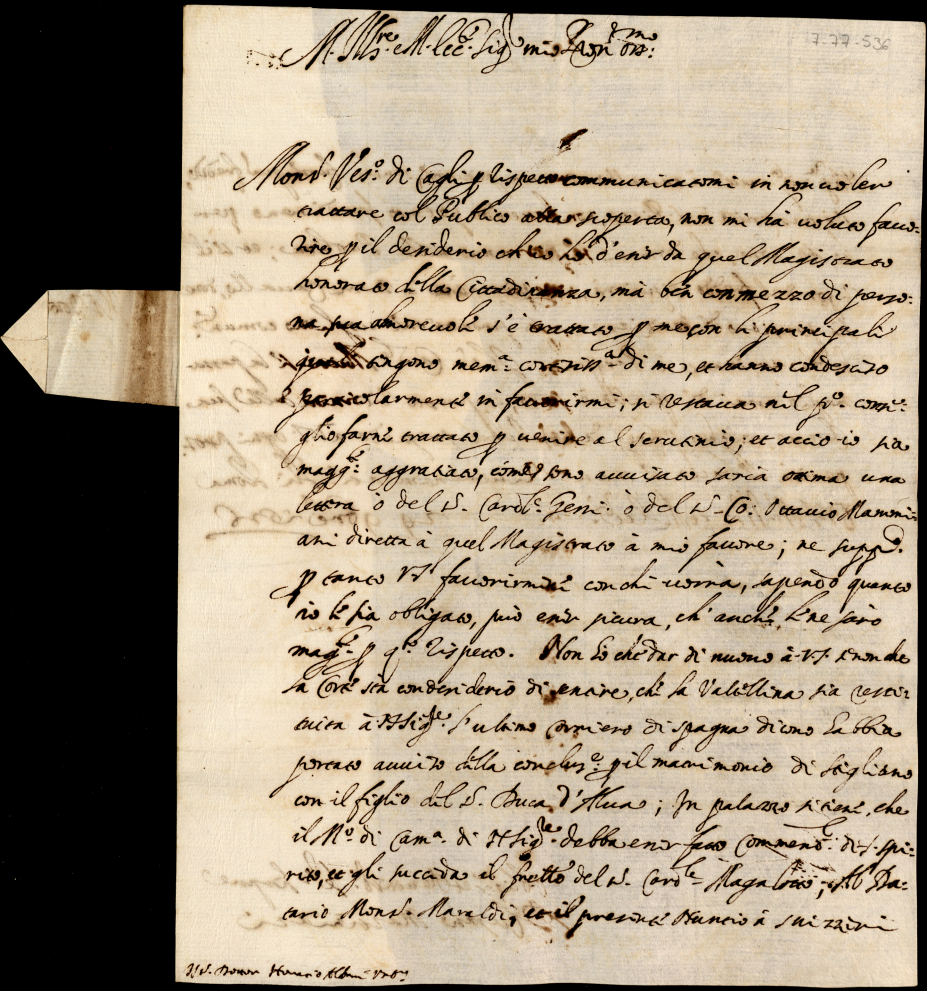 7-77-536
M. Ill.re e M. Ecc.te Sig.r mio Pron oss.mo
Mons.r Vesc.o di Cagli p rispetto communicatomi in non voler
trattare col Publico alla scoperta, non mi hà voluto favo-
rire p il desiderio ch'io hò d'esser da quel Magistrato
honorato della Cittadinanza, mà ben con mezzo di perso-
na sua amorevole s'è trattato p me con li principali
quali tengono mem.a cortesiss.a di me, et hanno condesceso
particolarmente in favorirmi; si restava nel p.o consi-
glio farne trattato p venire al scrutinio; et acciò io sia
magg.te aggratiato, come sono avvisato saria ottima una
lettera ò del S. Card.le Gessi ò del S. Co: Ottavio Mammi-
ani diretta à quel Magistrato à mio favore; ne supp.co
p tanto VS favorirmene con chi vorrà, sapendo quanto
io le sia obligato, può esser sicura, ch'anche le ne sarò
magg.te p q.to rispetto. Non hò che dar di nuovo à VS se non che
la Corte stà con desiderio di sentire, che la Valtellina sia resti-
tuita à N Sig.re l'ultimo corriero di spagna dicono habbia
portato avviso della conclus.e p il matrimonio di stigliano
con il figlio del S. Duca d'Alva; In palazzo si tiene, che
il M.o di Cam.a di N Sig.re debba esser fatto Commend.e di S. Spi-
rito, et gli succeda il fratello del S. Card.le Magalotto; Al Da-
tario Mons.r Maraldi, et il presente Nuntio à suizzeri
S. Dottor Horatio Albani Urb.o